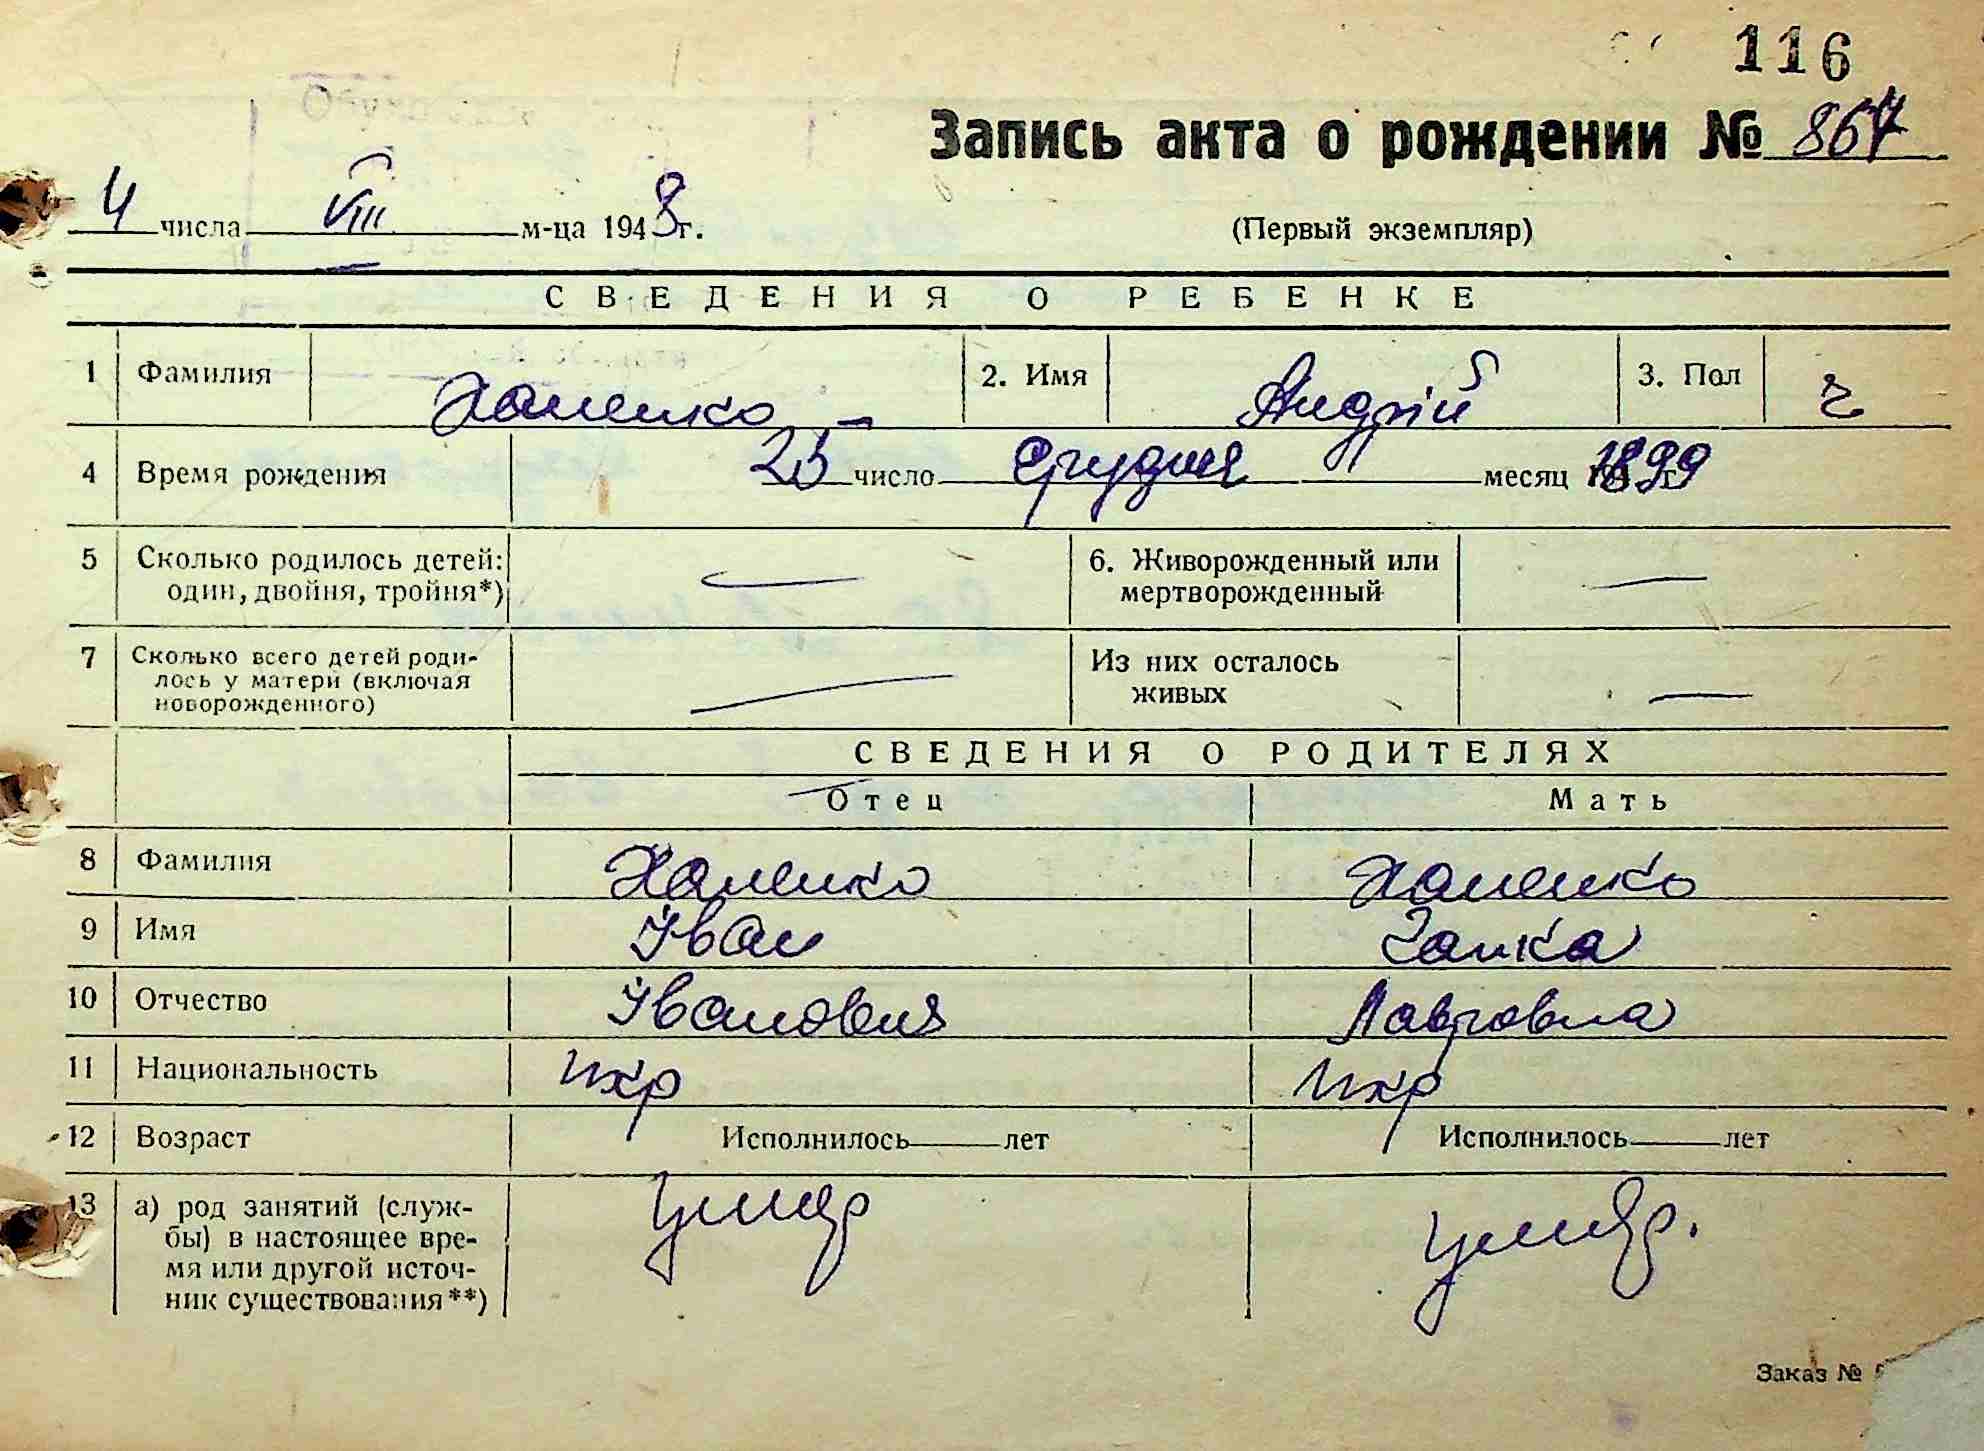 116
Запись акта о рождении № 867
4 числа VIII м-ца 1948 г.
(Первый экземпляр)
СВЕДЕНИЯ О РЕБЕНКЕ
1 Фамилия Ханенко 2. Имя Андрій 3. Пол ч
4 Время рождения 25 число Грудня месяц 1899
5 Сколько родилось детей: один, двойня, тройня*) —
6. Живорожденный или мертворожденный —
7 Сколько всего детей родилось у матери (включая новорожденного) —
Из них осталось живых —
СВЕДЕНИЯ О РОДИТЕЛЯХ
Отец Мать
8 Фамилия Ханенко Ханенко
9 Имя Іван Ганка
10 Отчество Іванович Лавровна
11 Национальность Укр Укр
12 Возраст Исполнилось лет Исполнилось лет
13 а) род занятий (служ-
бы) в настоящее вре-
мя или другой источ-
ник существования**)
Заказ №